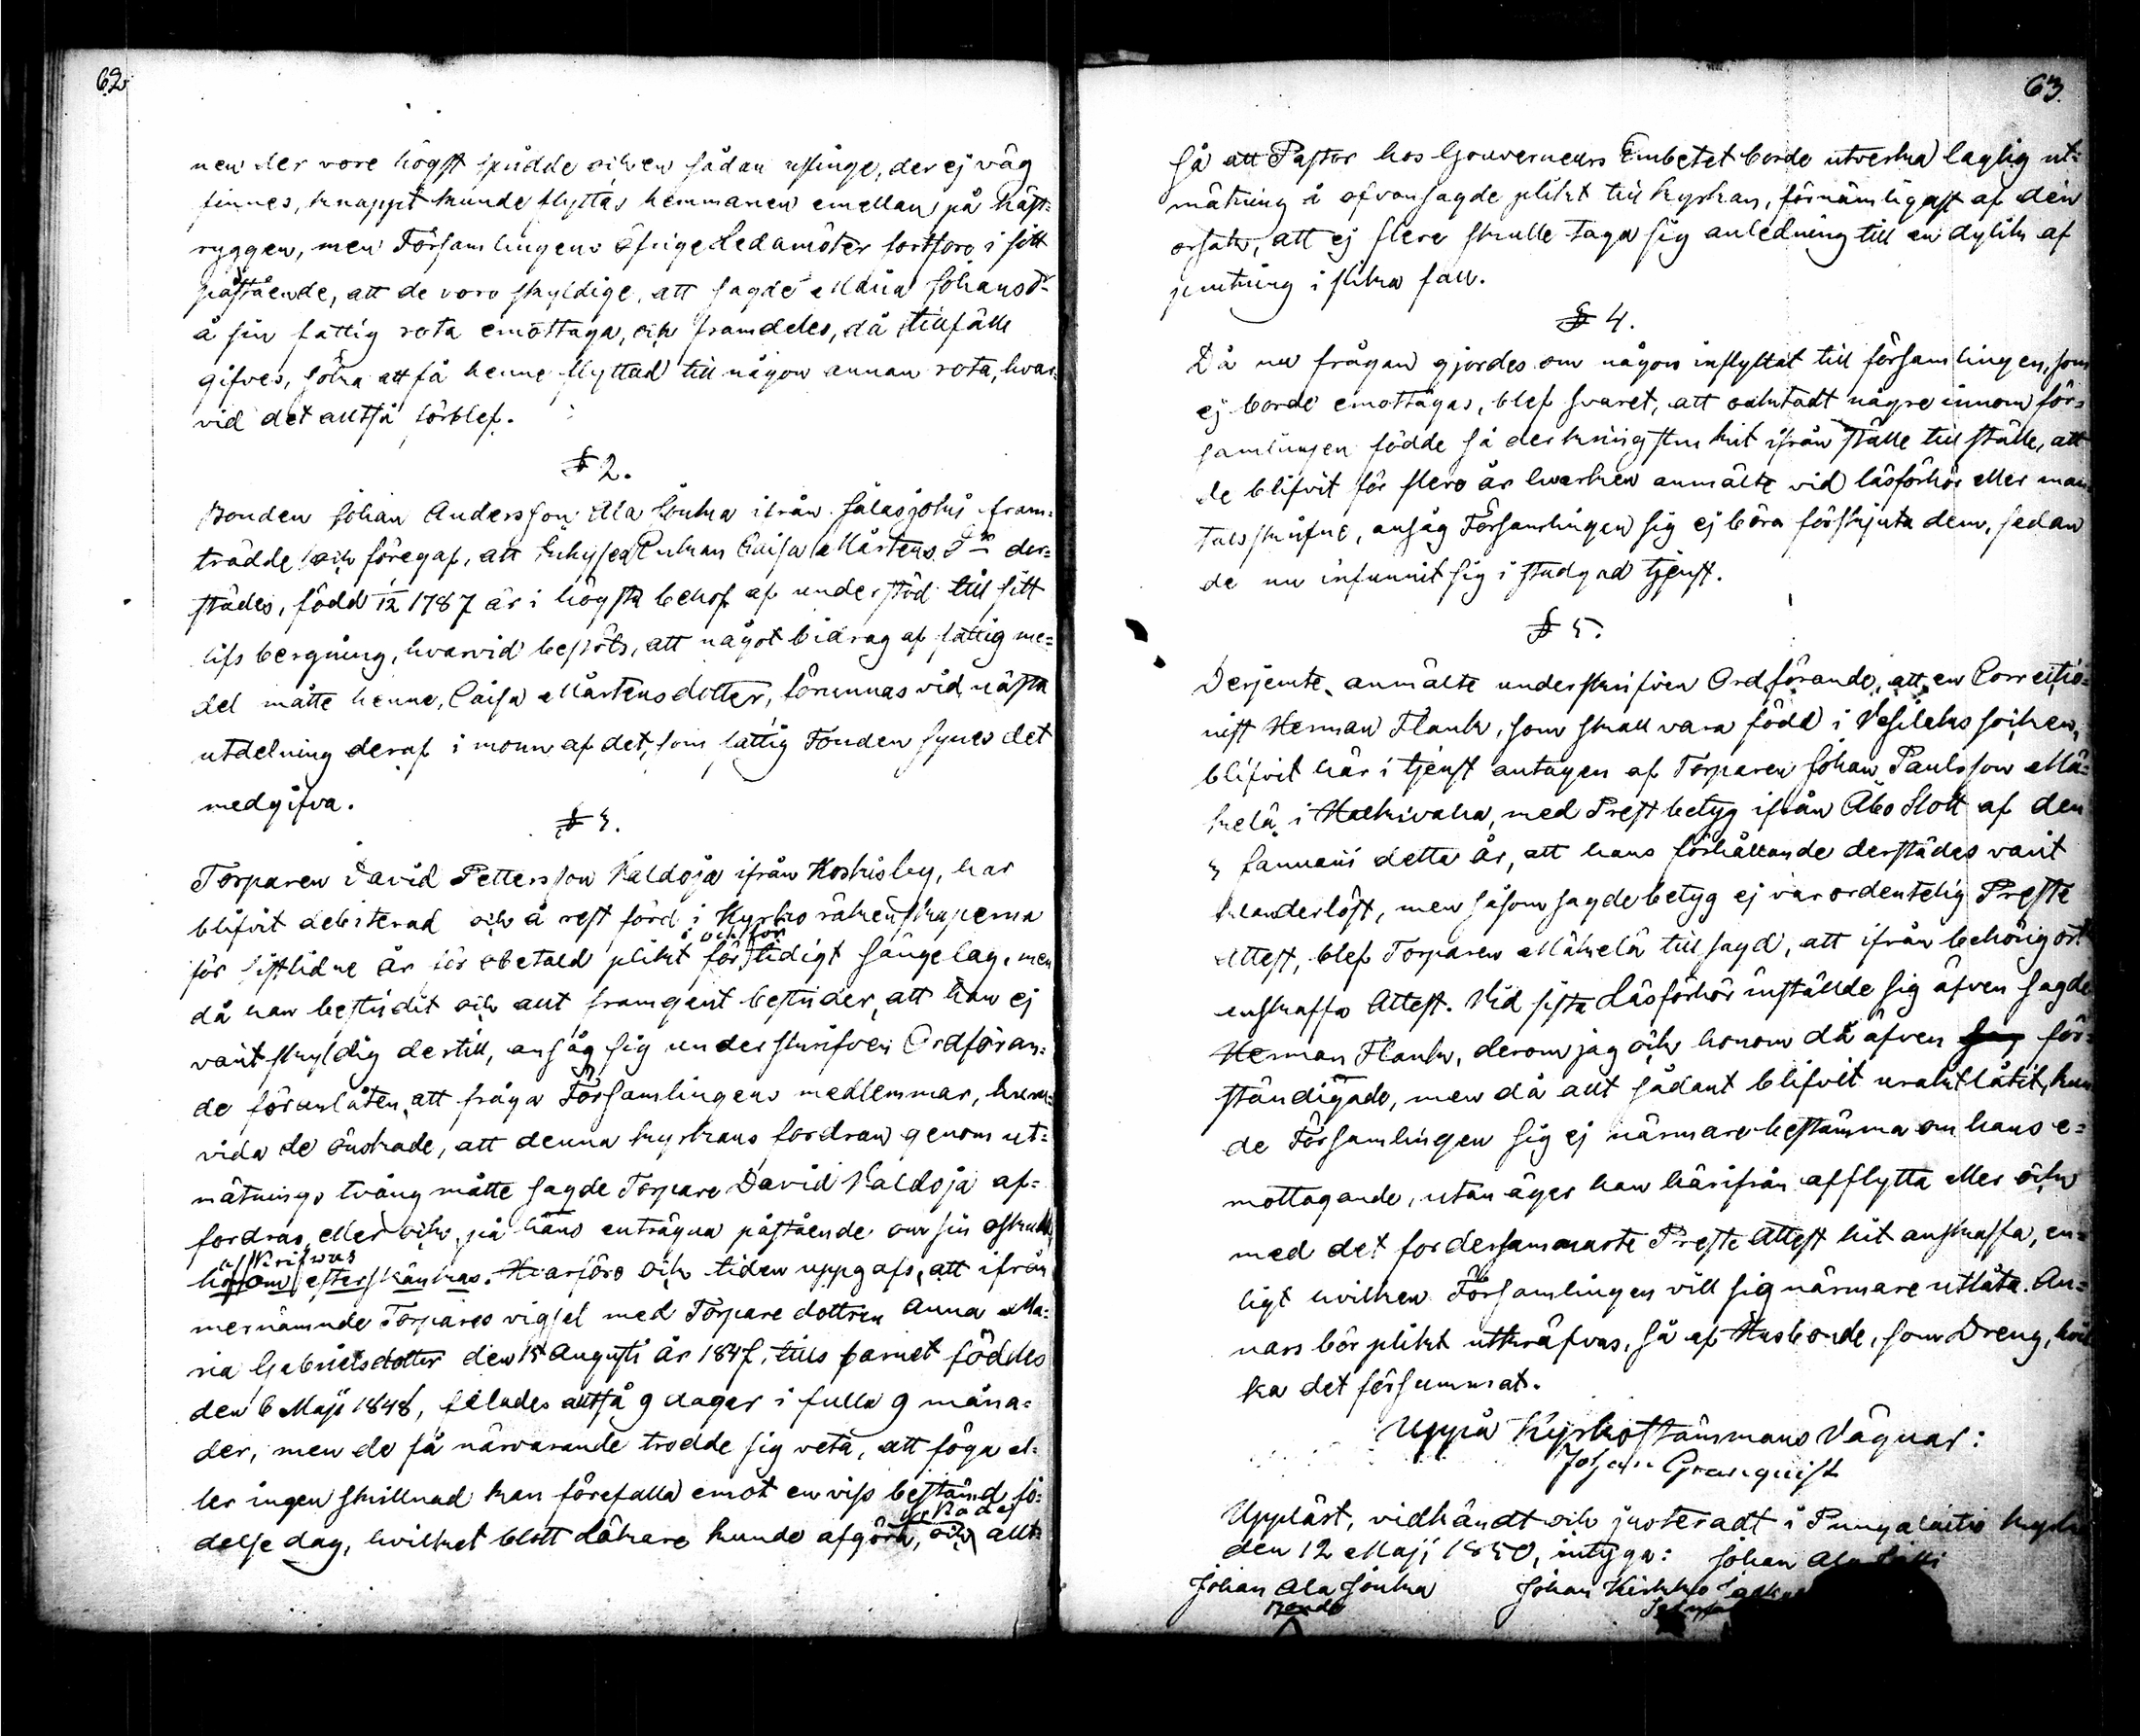 62
nen der vore högst spridde och en sådan usling, der ej väg
finnes, knappt kunde flyttas hemmanen emellan på häst-
ryggen, men Församlingens öfrige Ledamöter fortforo i sitt
påstående, att de voro skyldige, att sagde Maria Johansdr
å sin fattig rota emottaga, och framdeles, då tillfälle
gifves, söka att få henne flyttad till någon annan rota, hvar-
vid det alltså förblef.
§ 2.
Bonden Johan Andersson Ala Jouka ifrån Salasjoki fram-
trädde och föregaf, att Inhyses Enkan Caisa Mårtens Dr der-
städes, född 1/12 1787 är i högsta behof af understöd till sitt
lifs bergning, hvarvid beslöts, att något bidrag af fattig me-
del måtte henne, Caisa Mårtensdotter, förunnas vid nästa
utdelning deraf i monn af det, som fattig Fonden synes det
medgifva.
§ 3.
Torparen David Pettersson Valdoja ifrån Koskisby, har
blifvit debiterad och å rest förd i Kyrko räkenskaperna
för sistlidne år för obetald plikt för i och för tidigt sängelag, men
då han bestridit och allt framgent bestrider, att han ej
varit skyldig dertill, ansåg sig underskrifven Ordföran-
de föranlåten att fråga Församlingens medlemmar, huru-
vida de önskade, att denna kyrkans fordran genom ut-
mätnings tvång måtte sagde Torpare David Valdoja af-
fordras, eller och, på hans enträgna påstående om sin oskuld,
afskrifvas
honom efterskänkas. Hvarföre och tiden uppgafs, att ifrån
mernämnde Torpares vigsel med Torpare dottren Anna Ma-
ria Gabrielsdotter den 15 Augusti år 1847, tills barnet föddes
den 6 Maji 1848, felades alltså 9 dagar i fulla 9 måna-
der, men de få närvarande trodde sig veta, att föga el-
ler ingen skillnad kan förefalla emot en viss bestämd fö-
delse dag, hvilket blott Läkare kunde afgöra, och allt
63.
så att Pastor hos Gouverneurs Embetet borde utverka laglig ut-
mätning å ofvansagde plikt till kyrkan, förnämligast af den
orsak, att ej flere skulle taga sig anledning till en dylik af
jemkning i slika fall.
§ 4.
Då nu frågan gjordes om någon inflyttat till församlingen, som
ej borde emottagas, blef svaret, att oaktadt några innom för-
samlingen födde så derkring strukit ifrån ställe till ställe, att
de blifvit för flere år hvarken anmälte vid läsförhör eller man-
talsskrifne, ansåg Församlingen sig ej böra förskjuta dem, sedan
de nu infunnit sig i stadgad tjenst.
§ 5.
Derjemte anmälte underskrifven Ordförande, att en Correctio-
nist Herman Flank, som skall vara född i Vesilaks socken,
blifvit här i tjenst antagen af Torparen Johan Paulsson Mä-
kelä i Halkivaha, med Prestbetyg ifrån Åbo Slott af den
3 Januarii detta år, att hans förhållande derstädes varit
klanderlöst, men såsom sagde betyg ej var ordentelig Preste
Attest, blef Torparen Mäkelä tillsagd, att ifrån behörig ort
anskaffa Attest. Vid sista Läsförhör inställde sig äfven sagde
Herman Flank, derom jag och honom då äfven för-
ständigade, men då allt sådant blifvit uraktlåtit, kun-
de Församlingen sig ej närmare bestämma om hans e-
mottagande, utan äger han härifrån afflytta eller och
med det fordersammaste Preste Attest hit anskaffa, en-
ligt hvilken Församlingen vill sig närmare utlåta. An-
nars bör plikt utkräfvas, så af Husbonde, som Dreng, hvil-
ka det försummat.
Uppå Kyrkostämmans Vägnar:
Johan Granquist
Uppläst, vidkändt och justeradt i Pungalaitio kyrka
den 12 Maji 1850, intyga: Johan Ala
Johan Ala Jouka Johan Kirkko
Bonde